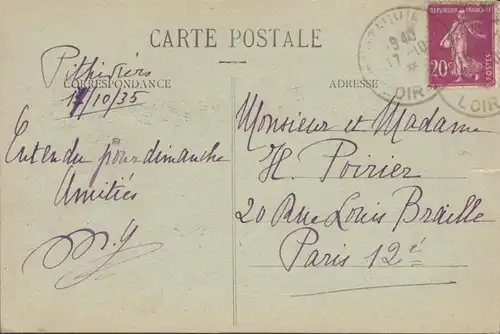 CARTE POSTALE
CORRESPONDANCE
ADRESSE
RÉPUBLIQUE FRANÇAISE
20c
POSTES
1940
17-10
LOIR
LOIRET
Pithiviers
17/10/35
Entendu pour dimanche
Amitiés
Monsieur et Madame
H. Poirier
20 Rue Louis Braille
Paris 12e